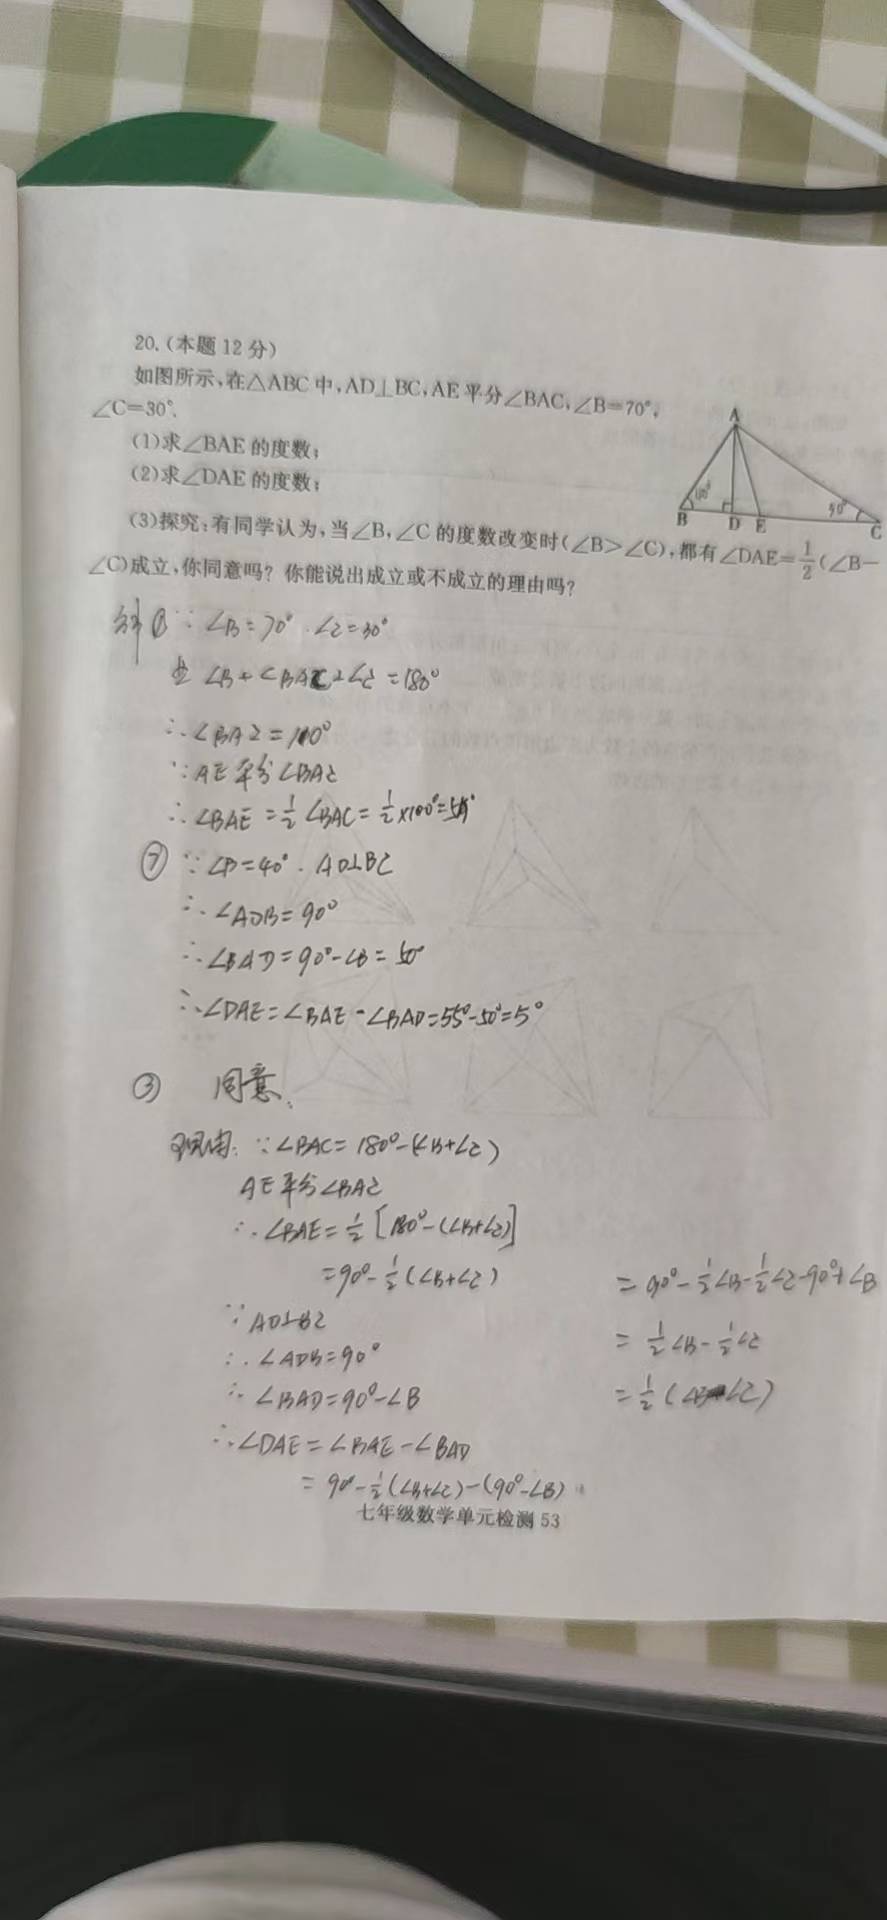 20.(本题12分)
如图所示,在△ABC中,AD⊥BC,AE平分∠BAC,∠B=70°,
∠C=30°.
(1)求∠BAE的度数;
(2)求∠DAE的度数;
(3)探究:有同学认为,当∠B,∠C的度数改变时(∠B>∠C),都有∠DAE=1/2(∠B-
∠C)成立,你同意吗?你能说出成立或不成立的理由吗?
A
B D E C
解 ① ∵ ∠B=70° . ∠C=30°
∠B+∠BAC+∠C=180°
∴∠BAC=110°
∵AE平分∠BAC
∴∠BAE=1/2∠BAC=1/2×100°=55°
② ∵∠B=40° . AD⊥BC
∴∠ADB=90°
∴∠BAD=90°-∠B=50°
∴∠DAE=∠BAE-∠BAD=55°-50°=5°
③ 同意.
理由: ∵∠BAC=180°-(∠B+∠C)
AE平分∠BAC
∴∠BAE=1/2[180°-(∠B+∠C)]
=90°-1/2(∠B+∠C)
∵AD⊥BC
∴∠ADB=90°
∴∠BAD=90°-∠B
∴∠DAE=∠BAE-∠BAD
=90°-1/2(∠B+∠C)-(90°-∠B)
=90°-1/2∠B-1/2∠C-90°+∠B
=1/2∠B-1/2∠C
=1/2(∠B-∠C)
七年级数学单元检测 53